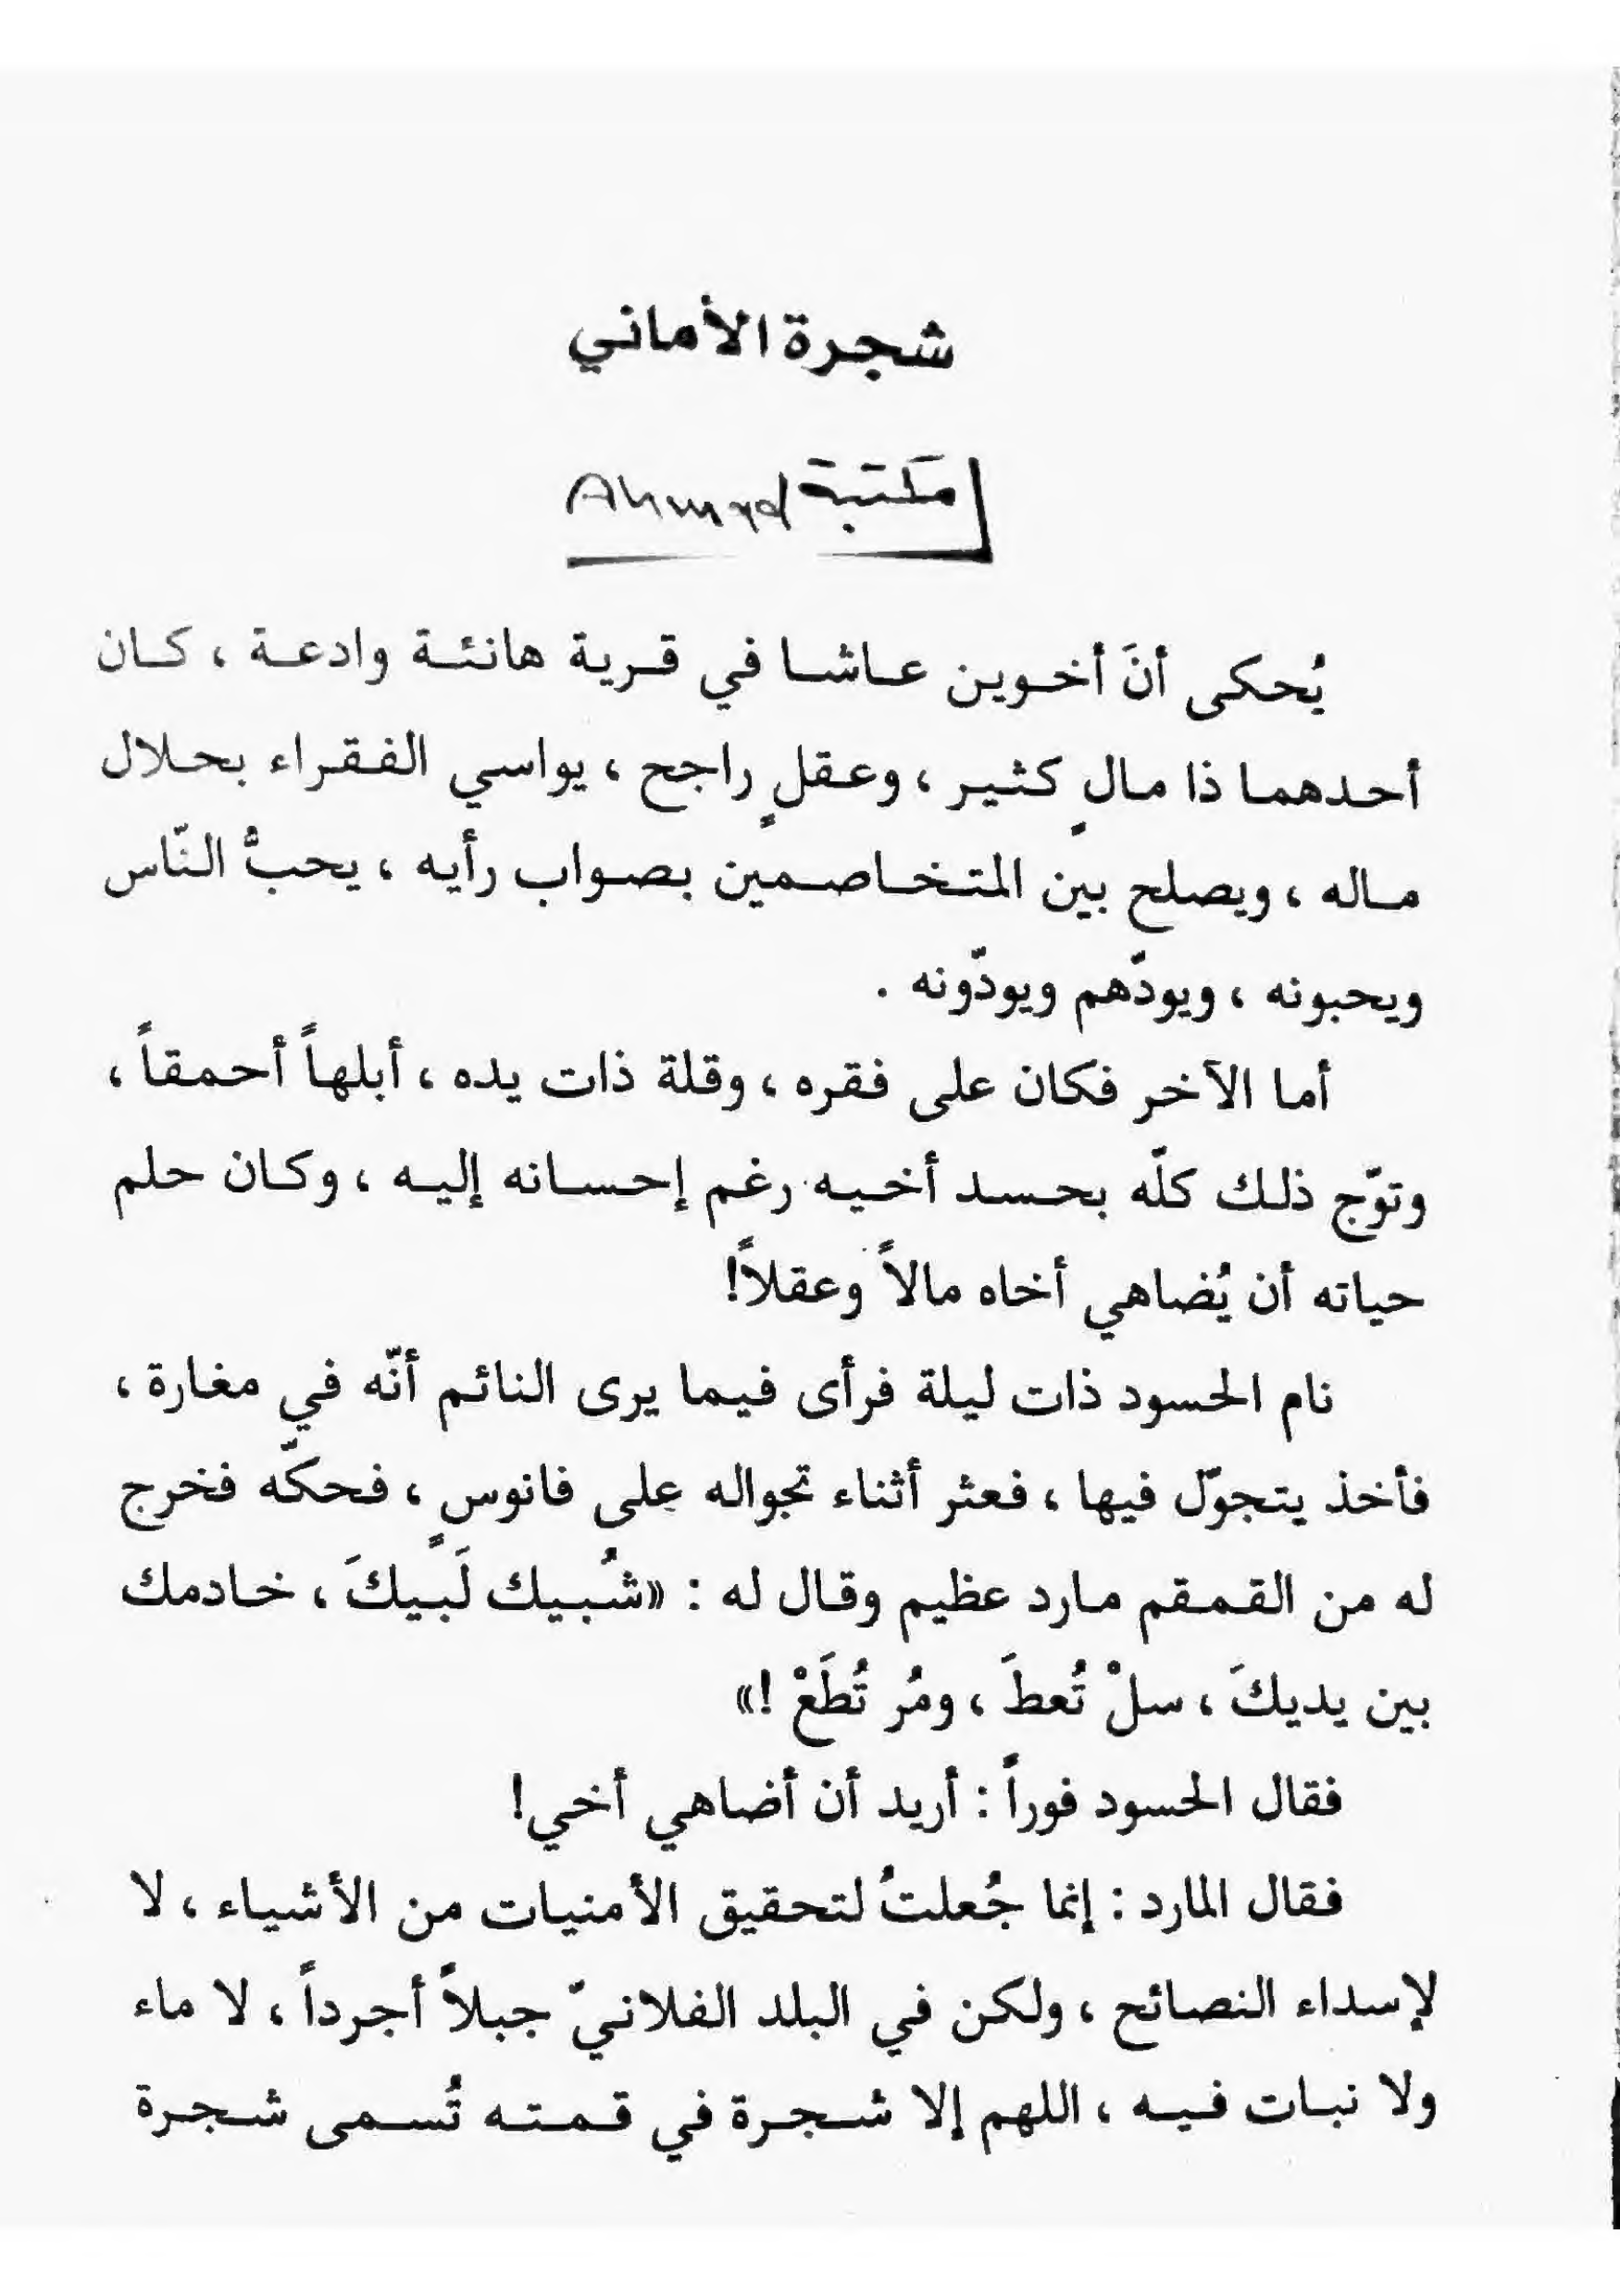 شجرة الأماني
مكتبة Ahmad
يُحكى أنَ أخوين عاشا في قرية هانئة وادعة ، كان
أحدهما ذا مالٍ كثير ، وعقلٍ راجح ، يواسي الفقراء بحلال
ماله ، ويصلح بين المتخاصمين بصواب رأيه ، يحبُّ النّاس
ويحبونه ، ويودّهم ويودّونه .
أما الآخر فكان على فقره ، وقلة ذات يده ، أبلهاً أحمقاً ،
وتوّج ذلك كلّه بحسد أخيه رغم إحسانه إليه ، وكان حلم
حياته أن يُضاهي أخاه مالاً وعقلاً!
نام الحسود ذات ليلة فرأى فيما يرى النائم أنّه في مغارة ،
فأخذ يتجوّل فيها ، فعثر أثناء تجواله على فانوسٍ ، فحكّه فخرج
له من القمقم مارد عظيم وقال له : «شُبيك لَبيكَ ، خادمك
بين يديكَ ، سلْ تُعطَ ، ومُر تُطَعْ !»
فقال الحسود فوراً : أريد أن أضاهي أخي!
فقال المارد : إنما جُعلتُ لتحقيق الأمنيات من الأشياء ، لا
لإسداء النصائح ، ولكن في البلد الفلانيّ جبلاً أجرداً ، لا ماء
ولا نبات فيه ، اللهم إلا شجرة في قمته تُسمى شجرة